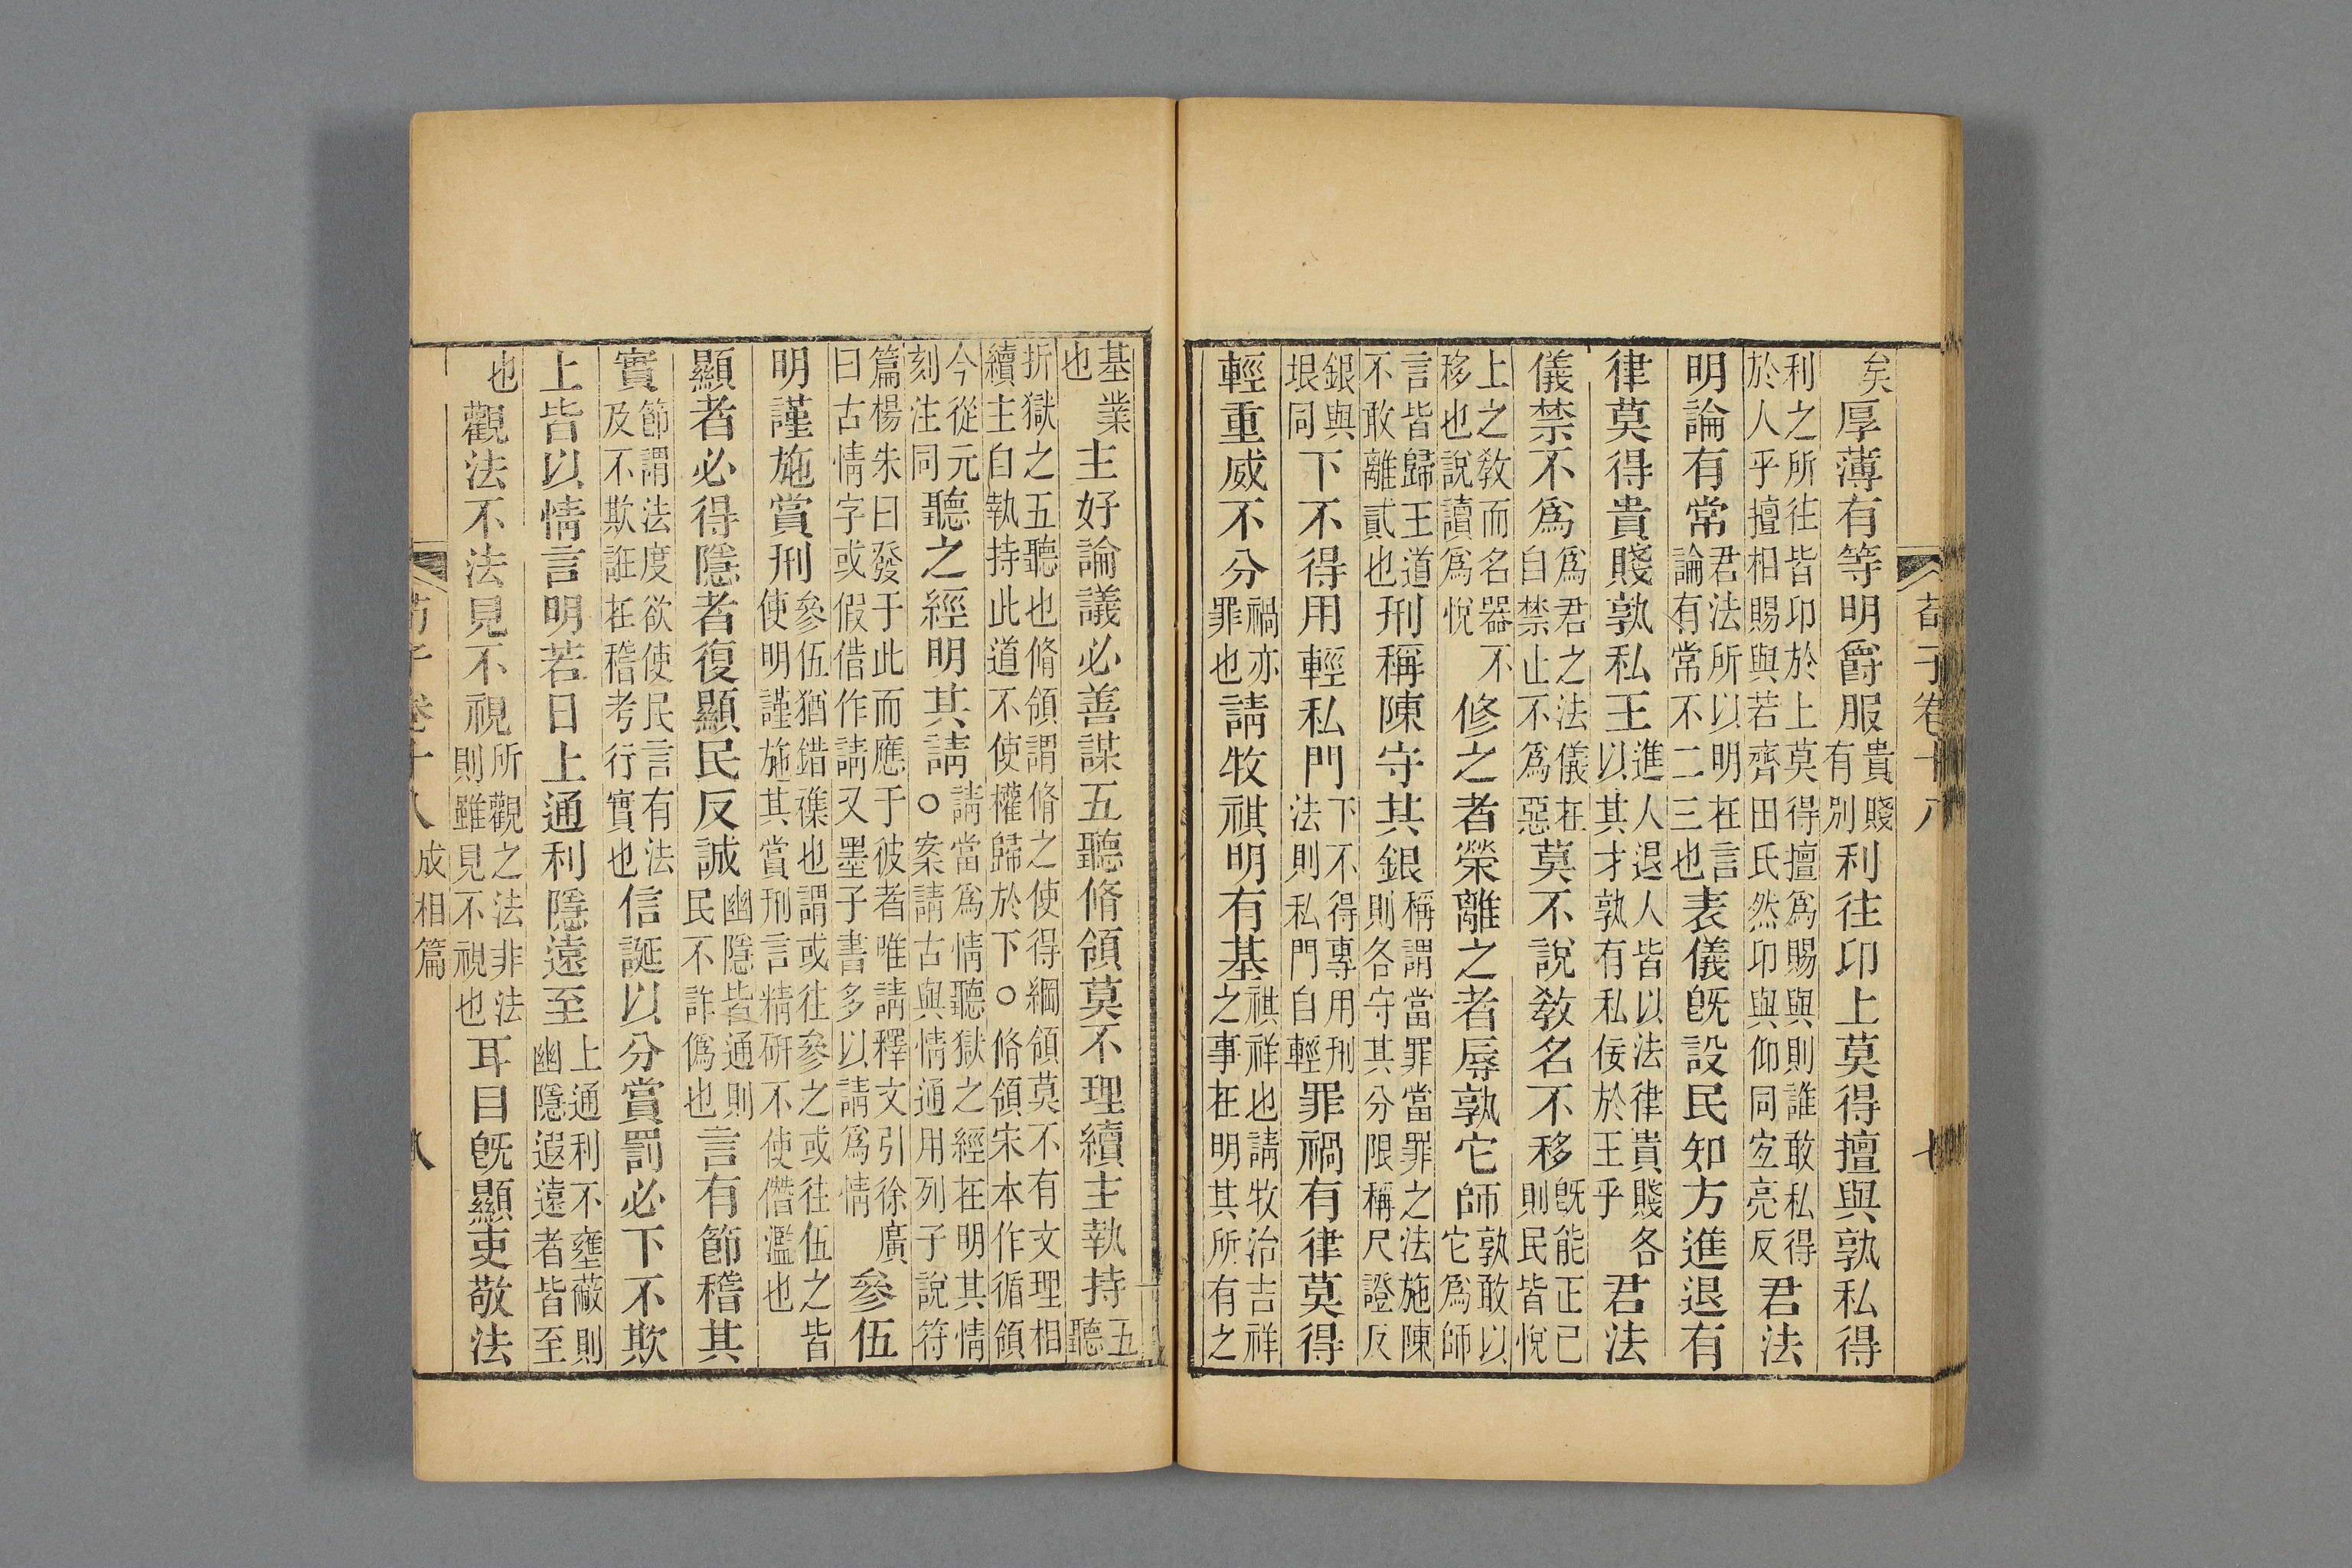 荀子卷十八 七
矣厚薄有等明爵服貴賤有別利往卬上莫得擅與孰私得
利之所往皆卬於上莫得擅爲賜與則誰敢私得於人乎擅相賜與若齊田氏然卬與仰同宐亮反君法
明論有常君法所以明在言論有常不二三也表儀旣設民知方進退有
律莫得貴賤孰私王進人退人皆以法律貴賤各以其才孰有私佞於王乎君法
儀禁不爲爲君之法儀在自禁止不爲惡莫不說敎名不移旣能正已則民皆悅
上之敎而名器不移也說讀爲悅修之者榮離之者辱孰它師孰敢以它爲師
言皆歸王道不敢離貳也刑稱陳守其銀稱謂當罪當罪之法施陳則各守其分限稱尺證反
銀與垠同下不得用輕私門下不得專用刑法則私門自輕罪禍有律莫得
輕重威不分禍亦罪也請牧祺明有基祺祥也請牧治吉祥之事在明其所有之
基業也主好論議必善謀五聽脩領莫不理續主執持五聽
折獄之五聽也脩領謂脩之使得綱領莫不有文理相續主自執持此道不使權歸於下○脩領宋本作循領
今從元刻注同聽之經明其請請當爲情聽獄之經在明其情○案請古與情通用列子說符
篇楊朱曰發于此而應于彼者唯請釋文引徐廣曰古情字或假借作請又墨子書多以請爲情參伍
明謹施賞刑參伍猶錯雜也謂或往參之或往伍之皆使明謹施其賞刑言精研不使僭濫也
顯者必得隱者復顯民反誠幽隱皆通則民不詐僞也言有節稽其
實節謂法度欲使民言有法及不欺誑在稽考行實也信誕以分賞罰必下不欺
上皆以情言明若日上通利隱遠至上通利不壅蔽則幽隱遐遠者皆至
也觀法不法見不視所觀之法非法則雖見不視也耳目旣顯吏敬法
荀子卷十八 成相篇 八